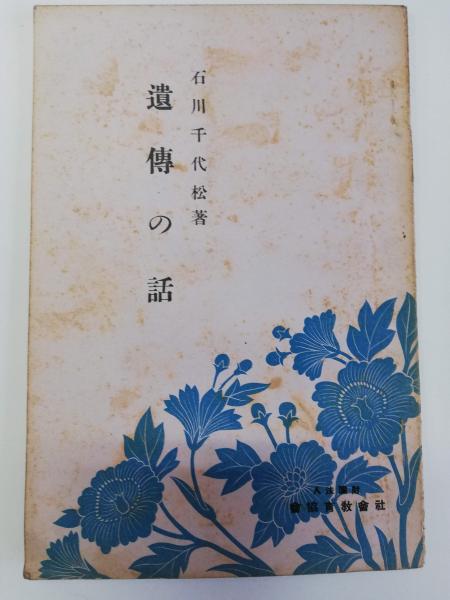 石川千代松著
遺傳の話
財團法人
社會教育協會